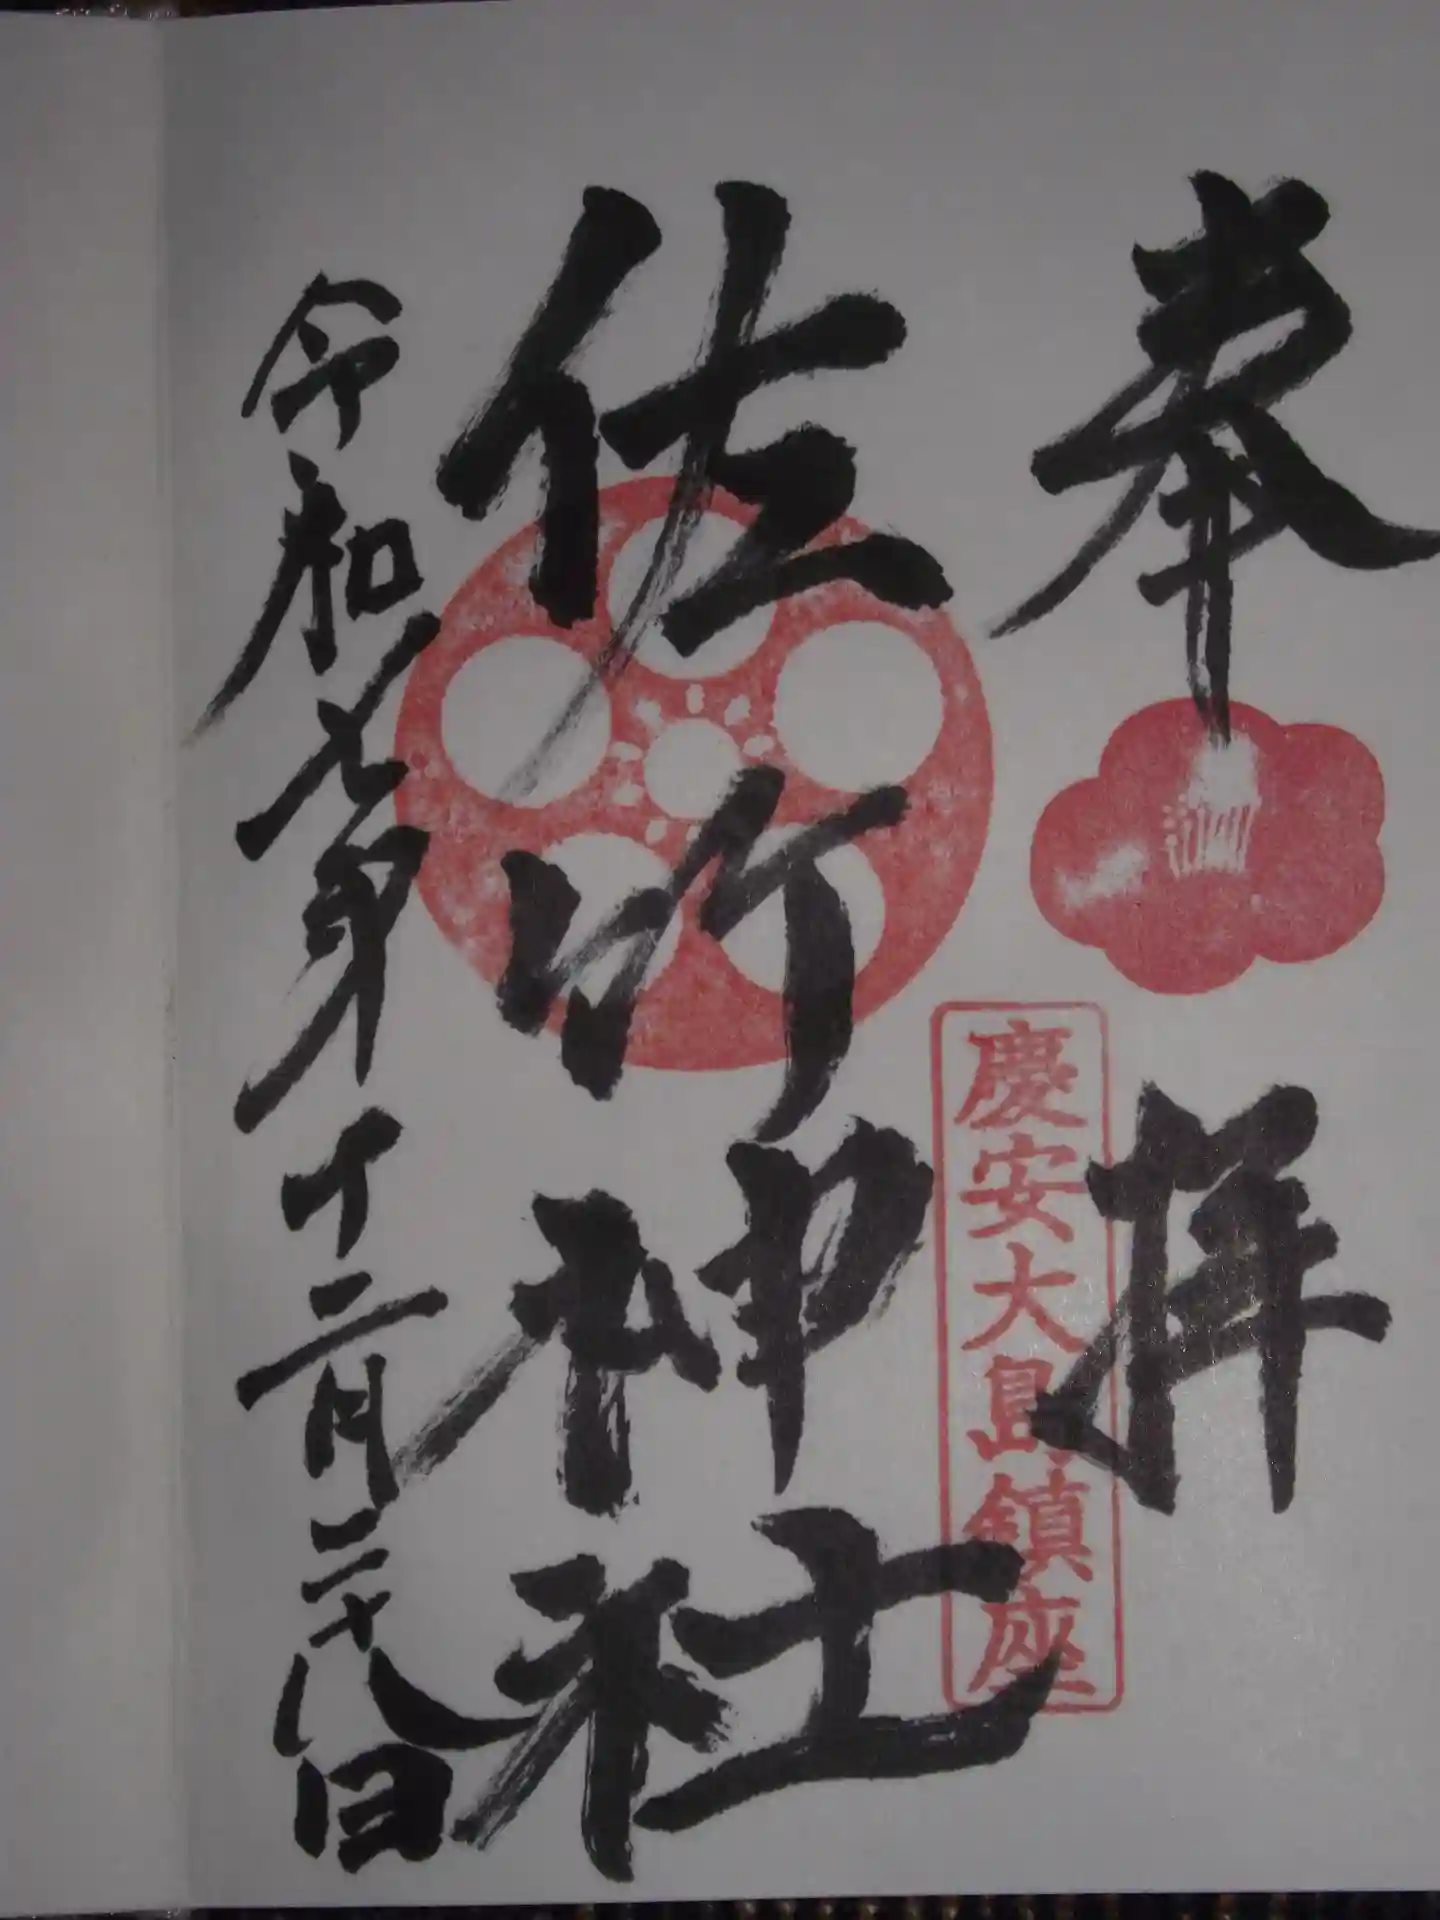 奉拝
慶安大島鎮座
佐竹神社
令和七年十二月二十八日